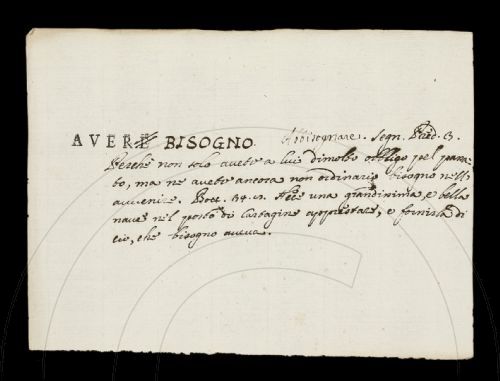 AVERE BISOGNO. Abbisognare. Segn. Pred. 3.
Perchè non solo avete a lui dimolto obbligo pel passa-
to, ma ne avete ancora non ordinario bisogno nell'
avvenire. Bocc. 34. Fece una grandissima e bella
nave nel porto di Cartagine apprestare, e fornirla di
ciò, che bisogno aveva.